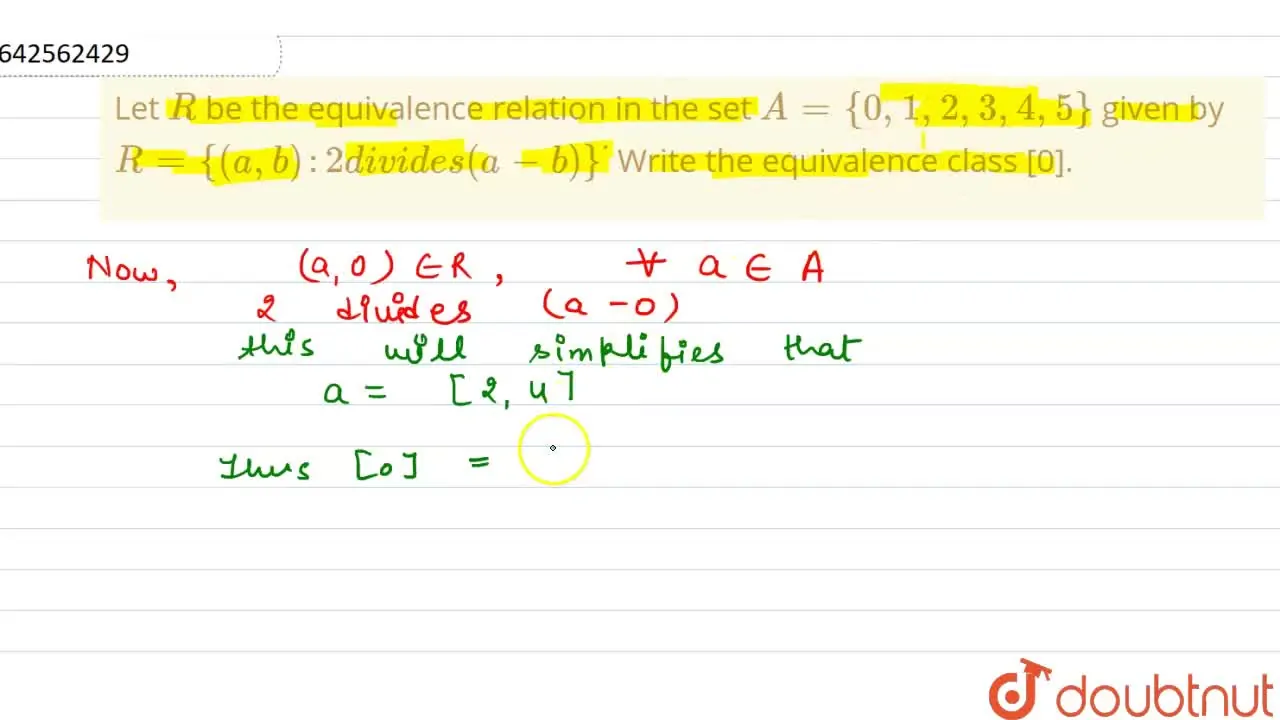 642562429
Let R be the equivalence relation in the set A = {0, 1, 2, 3, 4, 5} given by
R = {(a, b) : 2divides(a − b)}˙ Write the equivalence class [0].
Now, (a, 0) ∈ R, ∀ a ∈ A
2 divides (a - 0)
this will simplifies that
a = [2, 4]
Thus [0] =
doubtnut